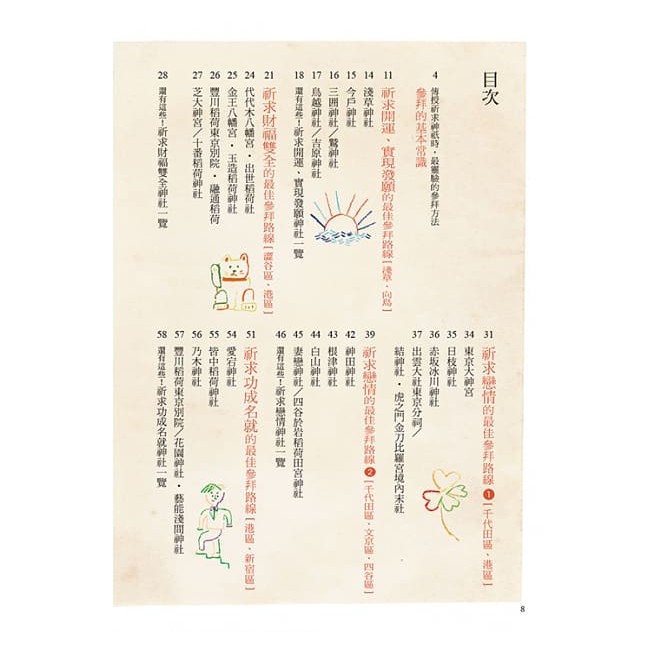 目次
4 傳授祈求神祇時，最靈驗的參拜方法
參拜的基本常識
11 祈求開運、實現發願的最佳參拜路線[淺草・向島]
14 淺草神社
15 今戶神社
16 三囲神社／鷲神社
17 鳥越神社／吉原神社
18 還有這些！祈求開運、實現發願神社一覽
21 祈求財福雙全的最佳參拜路線[澀谷區、港區]
24 代代木八幡宮・出世稻荷社
25 金王八幡宮・玉造稻荷神社
26 豐川稻荷東京別院・融通稻荷
27 芝大神宮／十番稻荷神社
28 還有這些！祈求財福雙全神社一覽
31 祈求戀情的最佳參拜路線❶[千代田區、港區]
34 東京大神宮
35 日枝神社
36 赤坂冰川神社
37 出雲大社東京分祠／
結神社・虎之門金刀比羅宮境內末社
39 祈求戀情的最佳參拜路線❷[千代田區・文京區、四谷區]
42 神田神社
43 根津神社
44 白山神社
45 妻戀神社／四谷於岩稻荷田宮神社
46 還有這些！祈求戀情神社一覽
51 祈求功成名就的最佳參拜路線[港區、新宿區]
54 愛宕神社
55 皆中稻荷神社
56 乃木神社
57 豐川稻荷東京別院／花園神社・藝能淺間神社
58 還有這些！祈求功成名就神社一覽
8